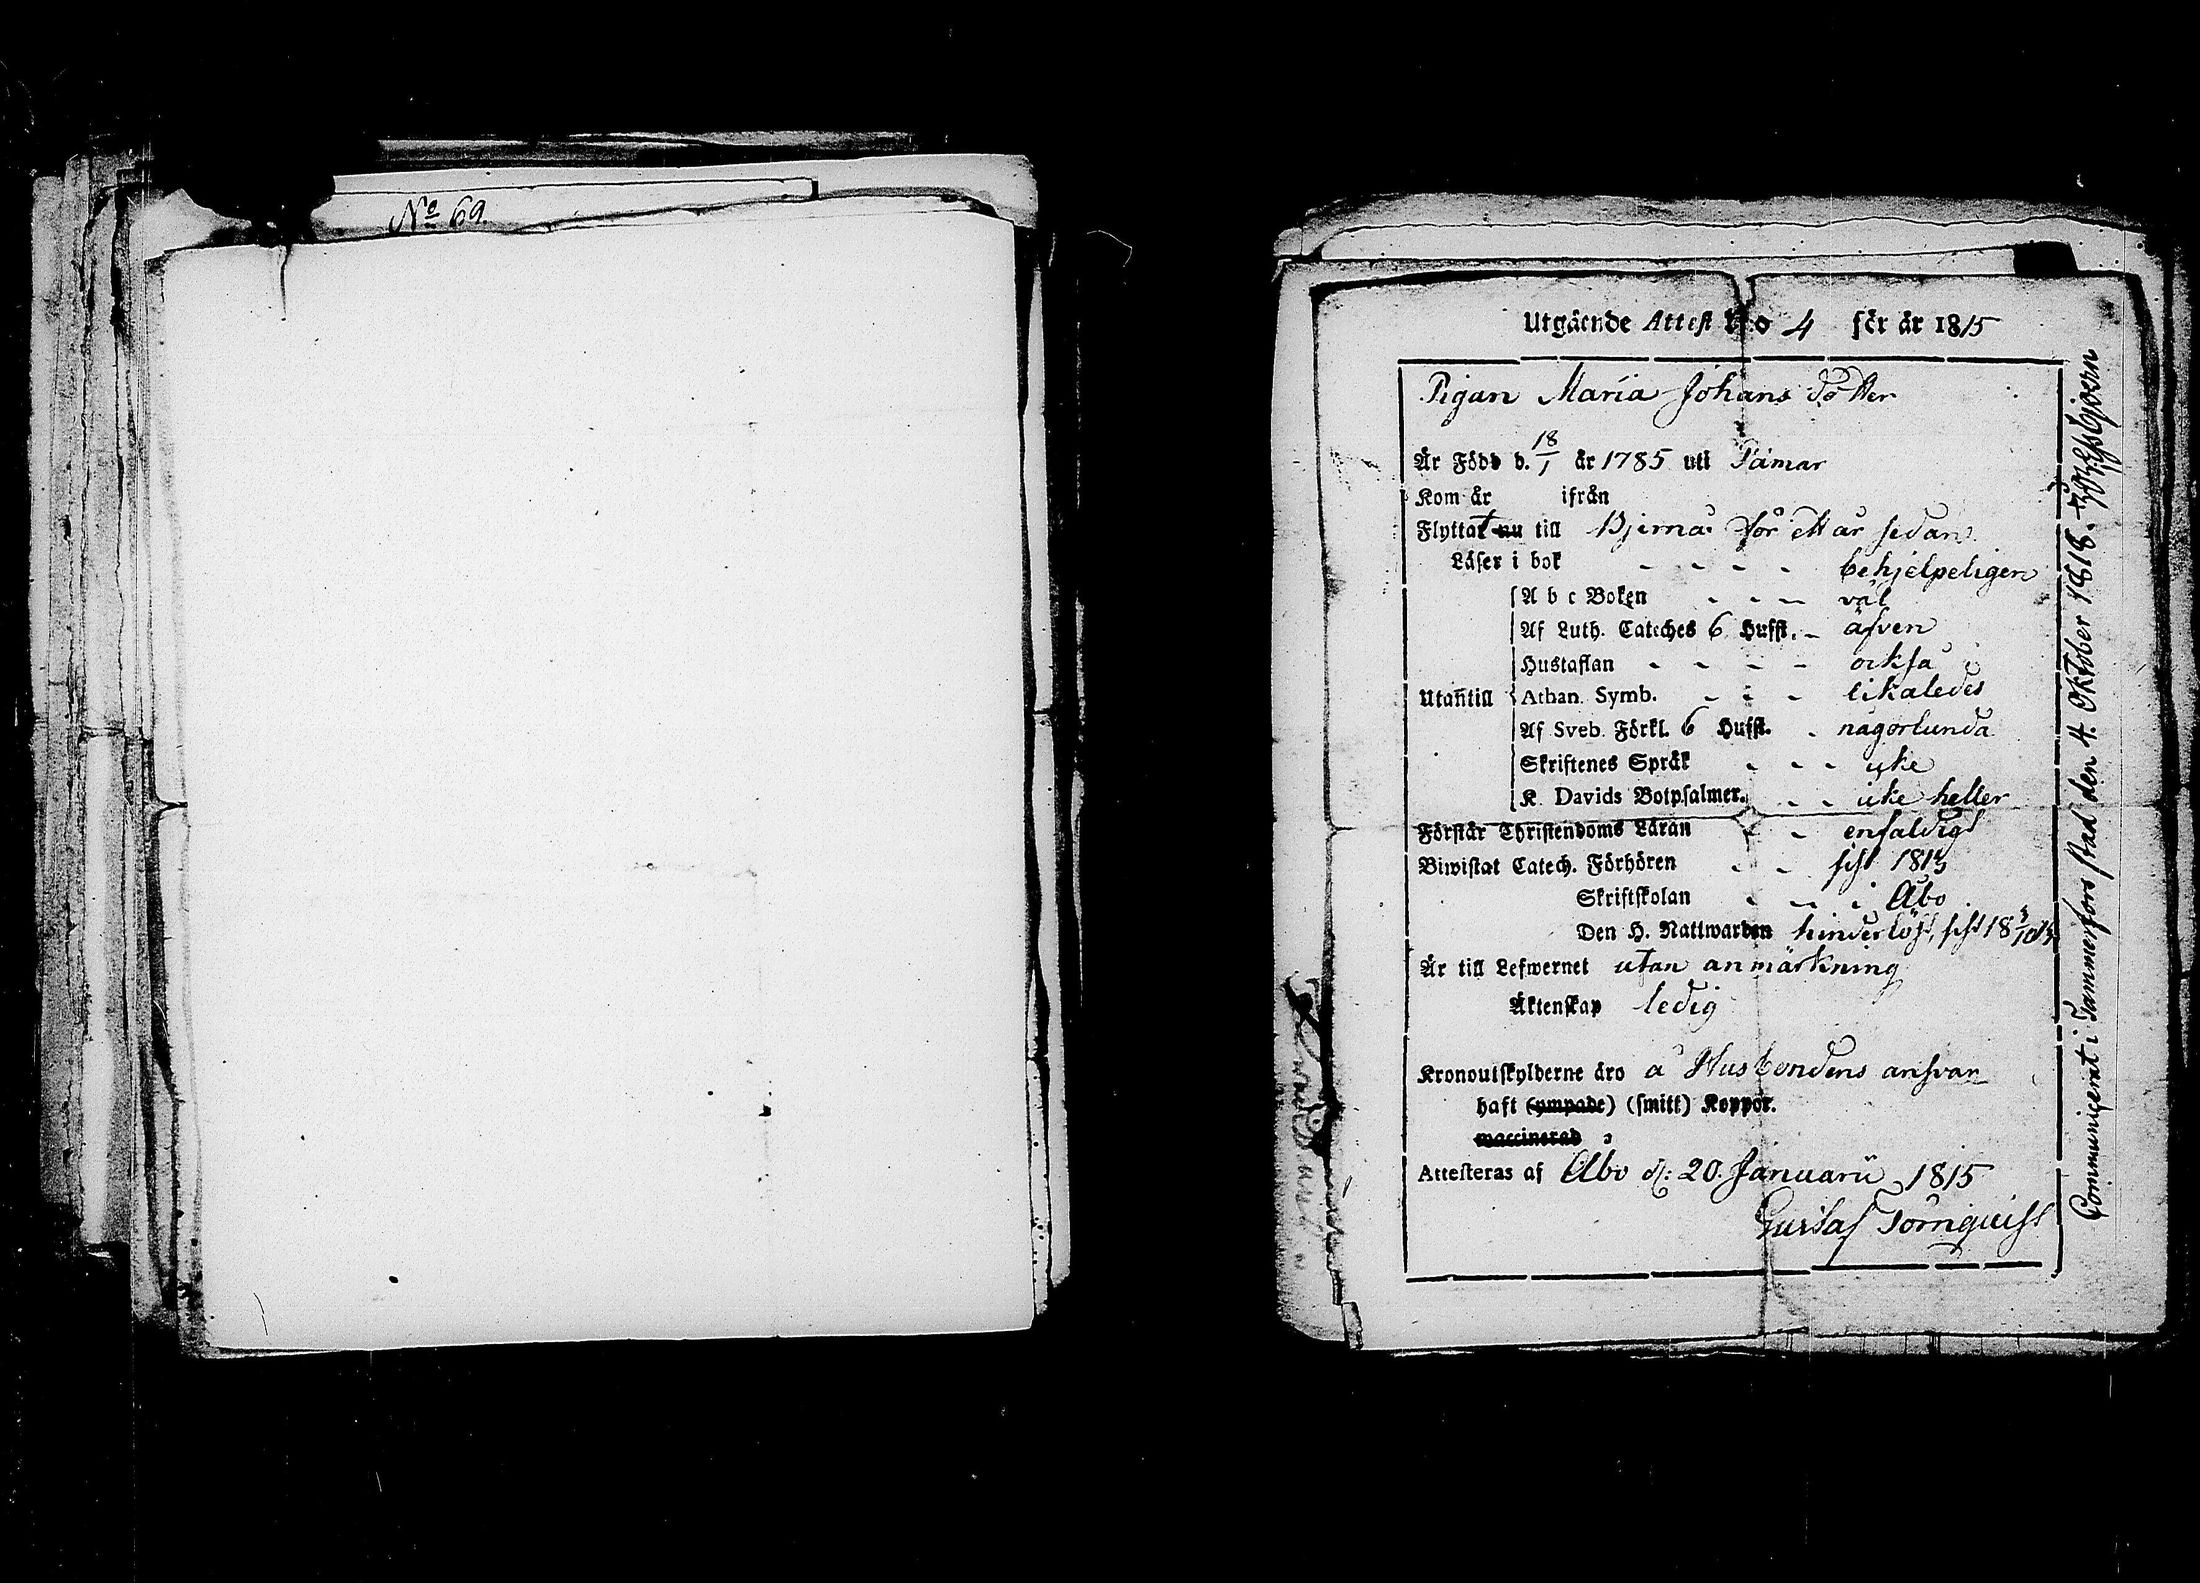 No 69.
Utgående Attest No 4 för år 1815
Pigan Maria Johans dotter
Är Född d. 18/1 år 1785 uti Pämar
Kom år ifrån
Flyttat nu till Bjerna för ett år sedan
Läser i bok - - - - behjelpeligen
A b c Boken - - - väl
Af Luth. Cateches 6 Hufst. - äfven
Hustaflan - - - - också
Utantill Athan. Symb. - - - likaledes
Af Sveb. Förkl. 6 Hufst. - någorlunda
Skriftenes Språk - - - icke
K. Davids Botpsalmer. - - icke heller
Förstår Christendoms Läran - - enfaldigt
Biwistat Catech. Förhören - - sist 1813
Skriftskolan - - i Åbo
Den H. Nattwarden hinderlöst, sist 18
Är till Lefwernet utan anmärkning
Äktenskap ledig
Kronoutskylderne äro å Husbondens ansvar
haft (ympade) (smitt) Koppor.
waccinerad
Attesteras af Åbo d: 20. Januarii 1815
Gustaf Törnquist
Communicerat i Tammerfors stad den 4. Oktober 1818.